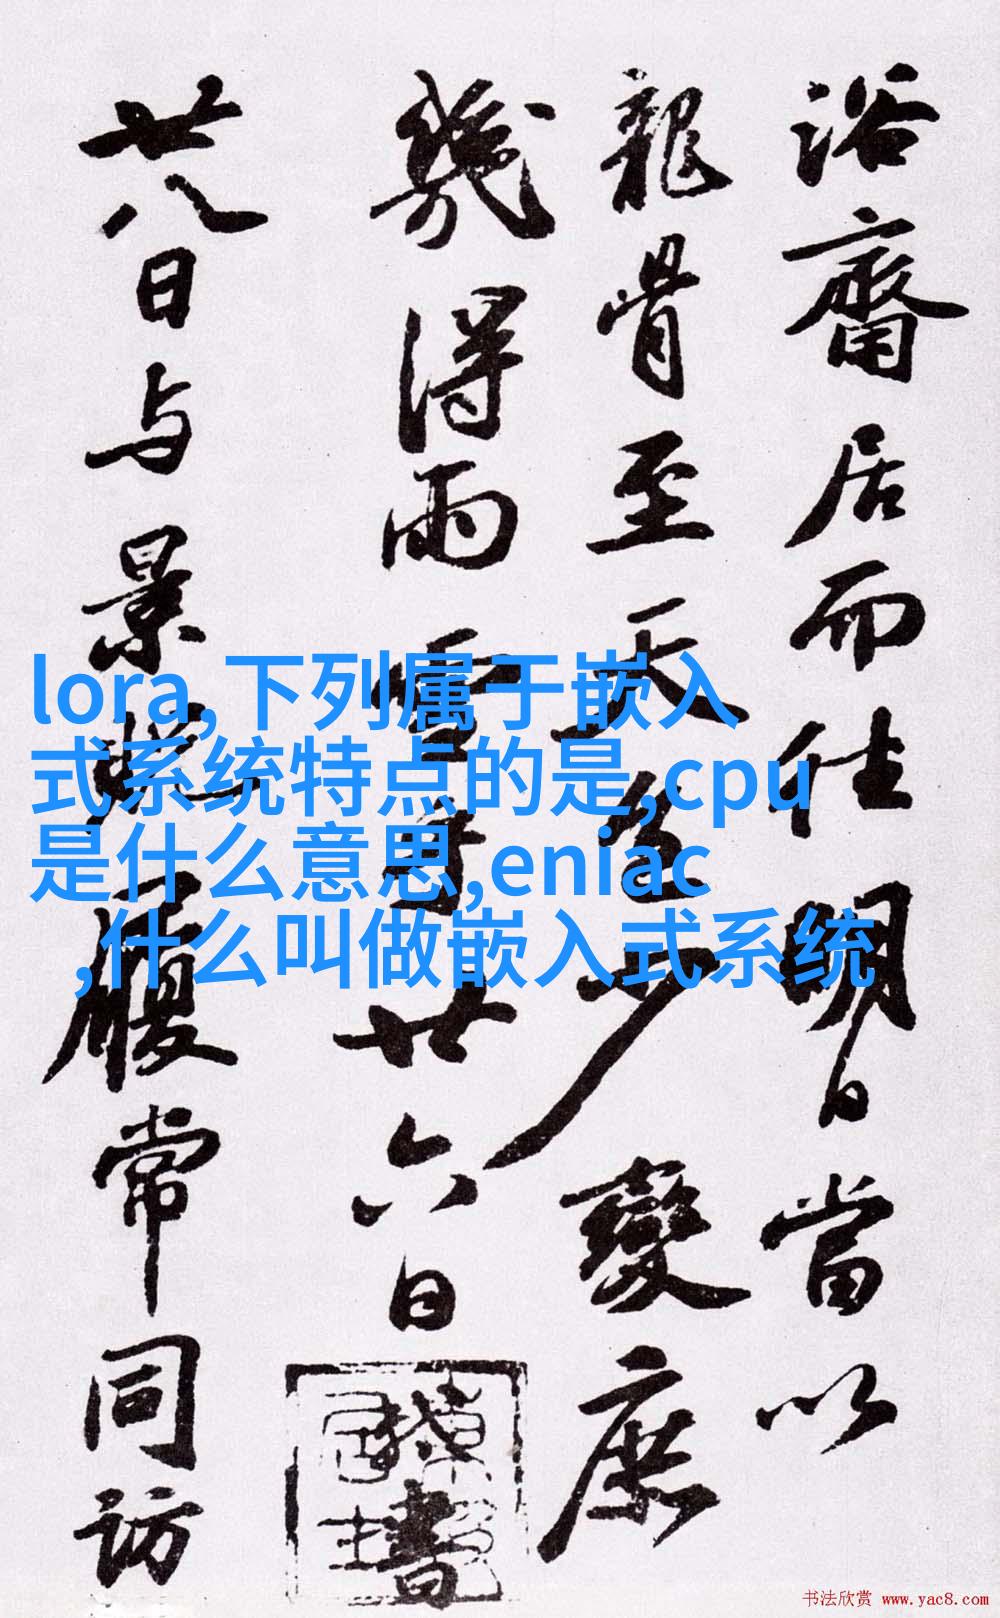 浴齋居而往明日當以
龍骨至天少變庶
幾得雨雪廿六日書
廿八日与景履常同訪
lora,下列属于嵌入
式系统特点的是,cpu
是什么意思,eniac
,什么叫做嵌入式系统
书法欣赏 www.yac8.com